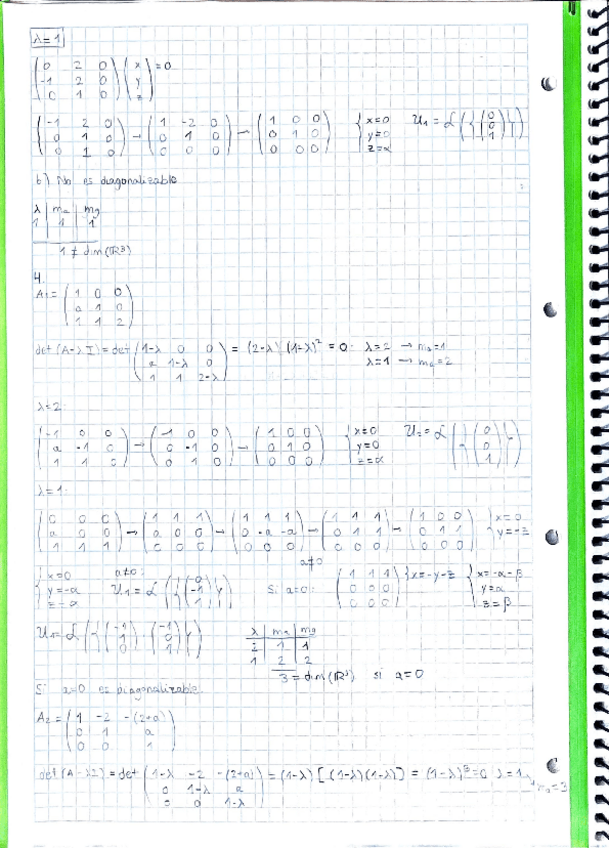 λ=1
(0 2 0; -1 2 0; 0 1 0)(x; y; z) = 0
(-1 2 0; 0 1 0; 0 1 0) → (1 -2 0; 0 1 0; 0 0 0) → (1 0 0; 0 1 0; 0 0 0) {x=0; y=0; z=α U₁ = L({(0; 0; 1)})
b) No es diagonalizable
λ | ma | mg
1 | 1 | 1
1 ≠ dim(ℝ³)
4.
A₁ = (1 0 0; a 1 0; 1 1 2)
det(A-λI) = det(1-λ 0 0; a 1-λ 0; 1 1 2-λ) = (2-λ)(1-λ)² = 0 λ=2 → ma=1
λ=1 → ma=2
λ=2:
(-1 0 0; a -1 0; 1 1 0) → (-1 0 0; 0 -1 0; 0 1 0) → (1 0 0; 0 1 0; 0 0 0) {x=0; y=0; z=α U₂ = L({(0; 0; 1)})
λ=1:
(0 0 0; a 0 0; 1 1 1) → (1 1 1; a 0 0; 0 0 0) → (1 1 1; 0 -a -a; 0 0 0) → (1 1 1; 0 1 1; 0 0 0) → (1 0 0; 0 1 1; 0 0 0) {x=0; y=-z
a≠0
{x=0; y=-α; z=α a≠0: U₁ = L({(0; -1; 1)}) Si a=0: (1 1 1; 0 0 0; 0 0 0) {x=-y-z {x=-α-β; y=α; z=β
U₁ = L({(-1; 1; 0), (-1; 0; 1)})
λ | ma | mg
2 | 1 | 1
1 | 2 | 2
3 = dim(ℝ³) si a=0
Si a=0 es diagonalizable
A₂ = (1 -2 -(2+a); 0 1 a; 0 0 1)
det(A-λI) = det(1-λ -2 -(2+a); 0 1-λ a; 0 0 1-λ) = (1-λ)[(1-λ)(1-λ)] = (1-λ)³ = 0 λ=1 → ma=3